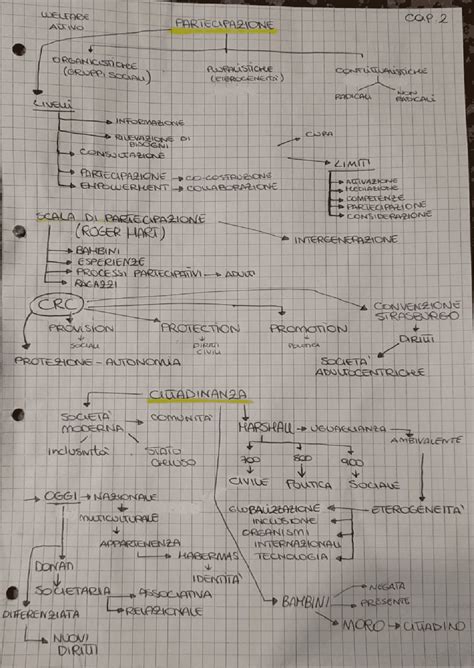 WELFARE ATTIVO
PARTECIPAZIONE
CAP. 2
ORGANICISTICHE (GRUPPI SOCIALI)
PLURALISTICHE (ETEROGENEITÀ)
CONFLITTUALISTICHE
RADICALI
NON RADICALI
LIVELLI
INFORMAZIONE
RILEVAZIONE DI BISOGNI
CONSULTAZIONE
PARTECIPAZIONE → CO-COSTRUZIONE
EMPOWERMENT → COLLABORAZIONE
CURA
LIMITI
ATTIVAZIONE
MEDIAZIONE
COMPETENZE
PARTECIPAZIONE
CONSIDERAZIONE
SCALA DI PARTECIPAZIONE
(ROGER HART)
INTERGENERAZIONE
BAMBINI
ESPERIENZE
PROCESSI PARTECIPATIVI → ADULTI
RAGAZZI
CRC
CONVENZIONE STRASBURGO
PROVISION
PROTECTION
PROMOTION
SOCIALI
DIRITTI CIVILI
POLITICA
DIRITTI
PROTEZIONE - AUTONOMIA
SOCIETÀ ADULTOCENTRICHE
CITTADINANZA
SOCIETÀ MODERNA
COMUNITÀ
MARSHALL → UGUAGLIANZA
AMBIVALENTE
INCLUSIVITÀ
STATO
700
800
900
CIVILE
POLITICA
SOCIALE
OGGI → NAZIONALE
MULTICULTURALE
APPARTENENZA
HABERMAS
IDENTITÀ
GLOBALIZZAZIONE
INCLUSIONE
ORGANISMI
INTERNAZIONALI
TECNOLOGIA
ETEROGENEITÀ
DONATI
SOCIETARIA
ASSOCIATIVA
RELAZIONALE
DIFFERENZIATA
NUOVI DIRITTI
BAMBINI
NEGATA
PRESENTE
MORO → CITTADINO